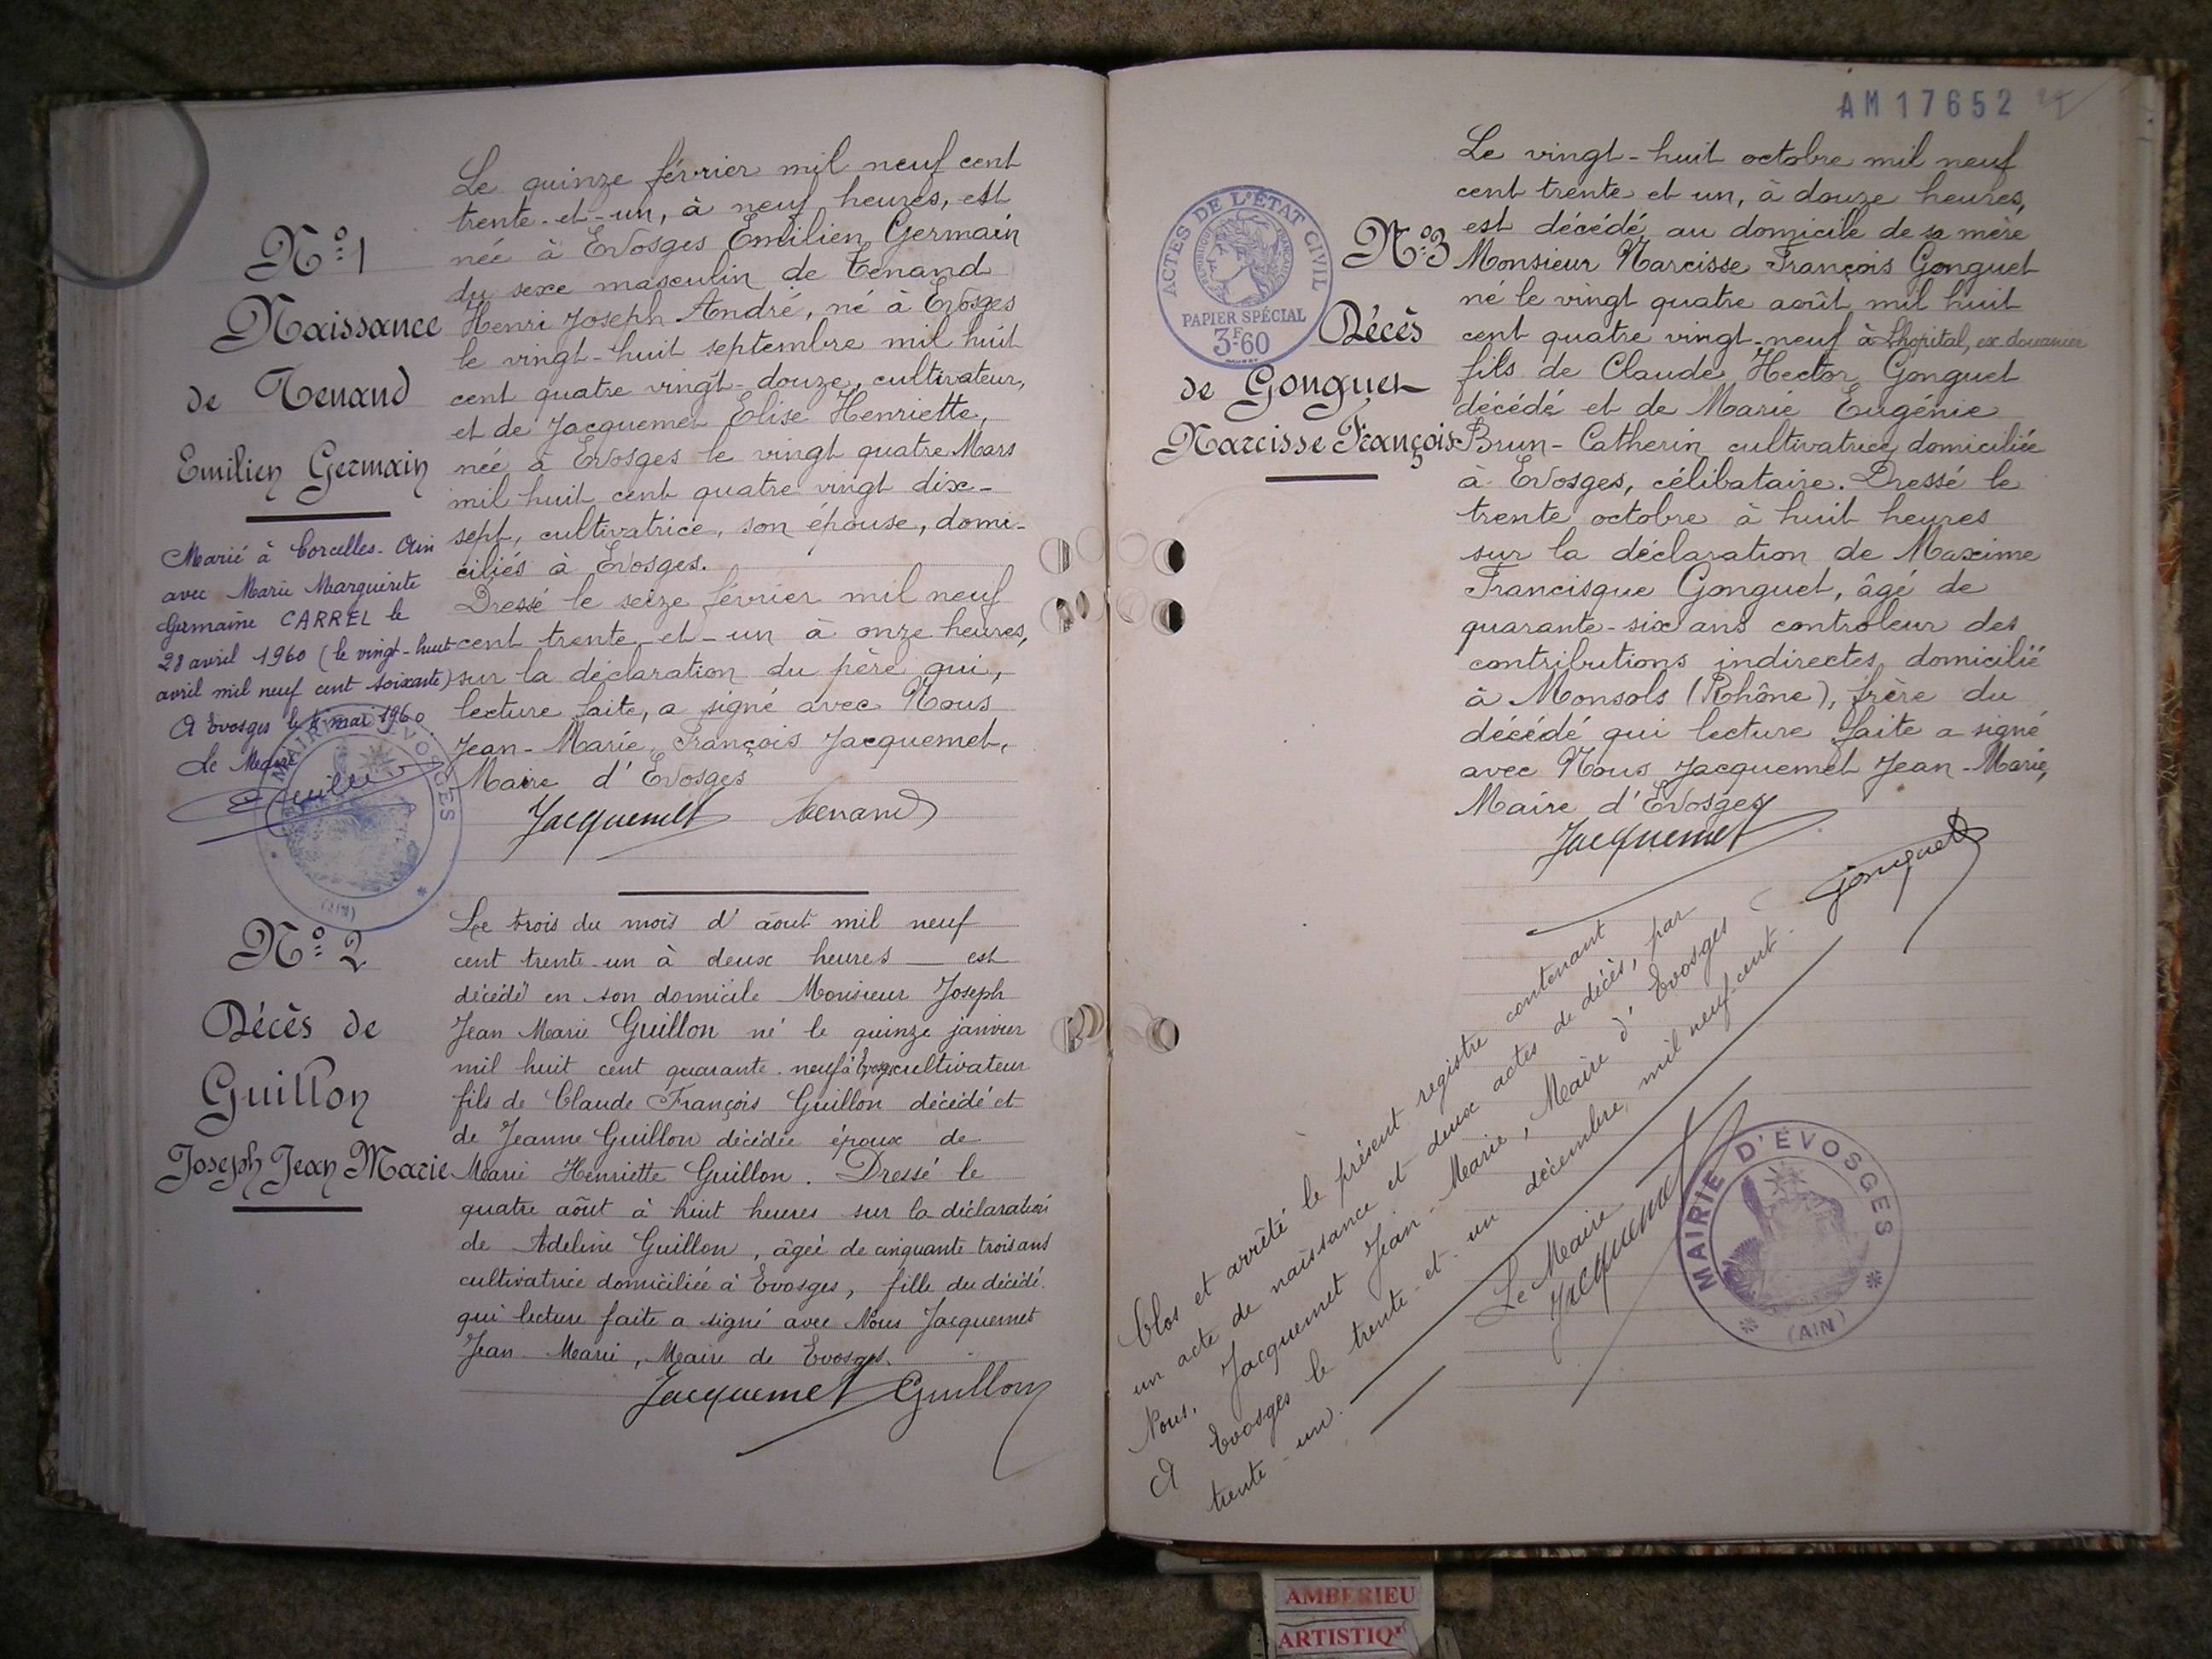 N° 1
Naissance
de Tenand
Emilien Germain
Marié à Corcelles-Ain
avec Marie Marguerite
Germaine CARREL le
28 avril 1960 (le vingt-huit
avril mil neuf cent soixante)
A Evosges le mai 1960
Le Maire
Le quinze février mil neuf cent
trente-et-un, à neuf heures, est
née à Evosges Emilien Germain
du sexe masculin de Tenand
Henri Joseph André, né à Evosges
le vingt-huit septembre mil huit
cent quatre vingt-douze, cultivateur,
et de Jacquemet Elise Henriette,
née à Evosges le vingt quatre Mars
mil huit cent quatre vingt dix-
sept, cultivatrice, son épouse, domi-
ciliés à Evosges.
Dressé le seize février mil neuf
cent trente-et-un à onze heures,
sur la déclaration du père qui,
lecture faite, a signé avec Nous
Jean-Marie François Jacquemet,
Maire d'Evosges
Jacquemet Tenand
MAIRIE D'EVOSGES
(AIN)
N° 2
Décès de
Guillon
Joseph Jean Marie
Le trois du mois d'août mil neuf
cent trente-un à deux heures — est
décédé en son domicile Monsieur Joseph
Jean Marie Guillon né le quinze janvier
mil huit cent quarante-neuf à Evosges cultivateur
fils de Claude François Guillon décédé et
de Jeanne Guillon décédée époux de
Marie Henriette Guillon. Dressé le
quatre août à huit heures sur la déclaration
de Adeline Guillon, âgée de cinquante trois ans
cultivatrice domiciliée à Evosges, fille du décédé.
qui lecture faite a signé avec Nous Jacquemet
Jean Marie, Maire de Evosges.
Jacquemet Guillon
AM 17652
ACTES DE L'ÉTAT CIVIL
RÉPUBLIQUE FRANÇAISE
PAPIER SPÉCIAL
3F60
N° 3
Décès
de Gonguet
Narcisse François
Le vingt-huit octobre mil neuf
cent trente et un, à douze heures,
est décédé au domicile de sa mère
Monsieur Narcisse François Gonguet
né le vingt quatre août mil huit
cent quatre vingt-neuf à Lhopital, ex douanier
fils de Claude Hector Gonguet
décédé et de Marie Eugénie
Brun-Catherin cultivatrice domiciliée
à Evosges, célibataire. Dressé le
trente octobre à huit heures
sur la déclaration de Maxime
Francisque Gonguet, âgé de
quarante-six ans controleur des
contributions indirectes domicilié
à Monsols (Rhône), frère du
décédé qui lecture faite a signé
avec Nous Jacquemet Jean-Marie,
Maire d'Evosges
Jacquemet
Gonguet
Clos et arrêté le présent registre contenant
un acte de naissance et deux actes de décès, par
Nous, Jacquemet Jean-Marie, Maire d'Evosges
A Evosges le trente-et-un décembre mil neuf-cent
trente-un.
Le Maire
Jacquemet
MAIRIE D'EVOSGES
(AIN)
AMBERIEU
ARTISTIQ